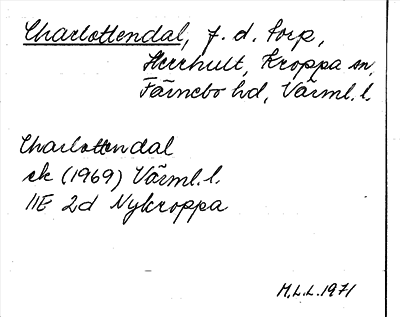 Charlottendal, f. d. torp,
Herrhult, Kroppa sn,
Färnebo hd, Värml. l.
Charlottendal
ek (1969) Värml. l.
11E 2d Nykroppa
M.L.L. 1971